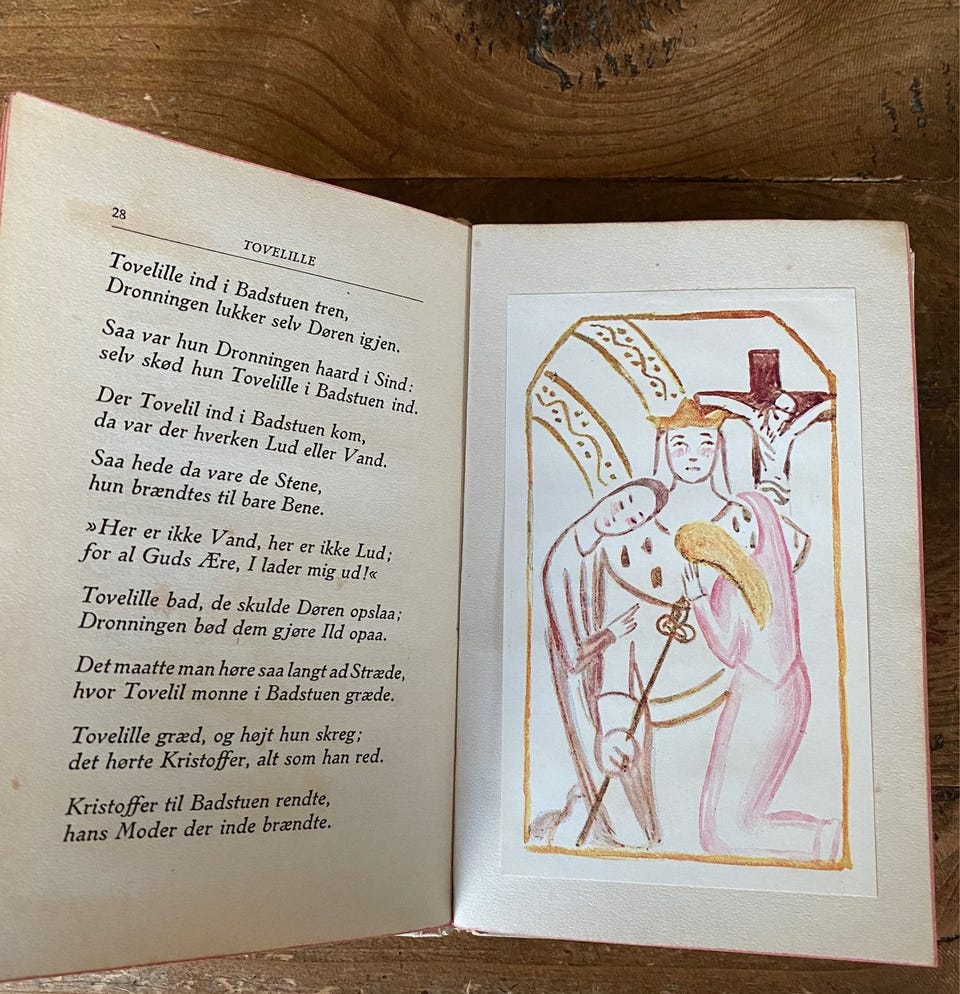 28
TOVELILLE
Tovelille ind i Badstuen tren,
Dronningen lukker selv Døren igjen.
Saa var hun Dronningen haard i Sind:
selv skød hun Tovelille i Badstuen ind.
Der Tovelil ind i Badstuen kom,
da var der hverken Lud eller Vand.
Saa hede da vare de Stene,
hun brændtes til bare Bene.
»Her er ikke Vand, her er ikke Lud;
for al Guds Ære, I lader mig ud!«
Tovelille bad, de skulde Døren opslaa;
Dronningen bød dem gjøre Ild opaa.
Det maatte man høre saa langt ad Stræde,
hvor Tovelil monne i Badstuen græde.
Tovelille græd, og højt hun skreg;
det hørte Kristoffer, alt som han red.
Kristoffer til Badstuen rendte,
hans Moder der inde brændte.